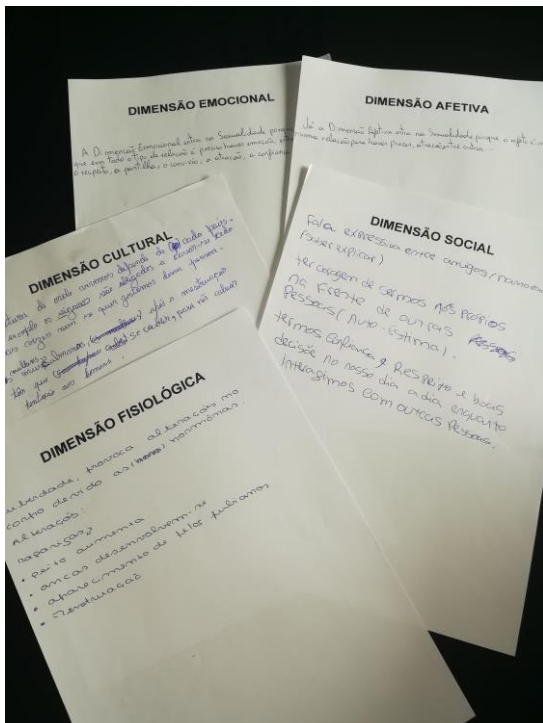 DIMENSÃO EMOCIONAL
A Dimensão Emocional entra na Sexualidade porque
que em todo o tipo de relação é preciso haver emoção, entre
o respeito, a partilha, o convívio, a atração, a confiança
DIMENSÃO AFETIVA
Já a Dimensão Afetiva entra na Sexualidade porque o afeto é
numa relação para haver prazer, atração entre outros...
DIMENSÃO CULTURAL
de onde viermos depende de cada país.
exemplo os ciganos são obrigados a
ciganos nem se quer gostamos dessa pessoa.
As mulheres
muçulmanas, após a menstruação
têm que se cobrir, para não causar
tentação aos homens.
DIMENSÃO SOCIAL
Falar expressiva entre amigos/
(saber explicar)
ter coragem de sermos nós próprios
na frente de outras
Pessoas (Auto-Estima).
termos confiança, Respeito e boas
decisõe no nosso dia a dia enquanto
Interagimos com outras Pessoas.
DIMENSÃO FISIOLÓGICA
puberdade, provoca alterações no
corpo devido as hormónas.
Alteração:
raparigas?
• peito aumenta
• ancas desenvolvem-se
• aparecimento de pêlos pubianos
• Menstruação